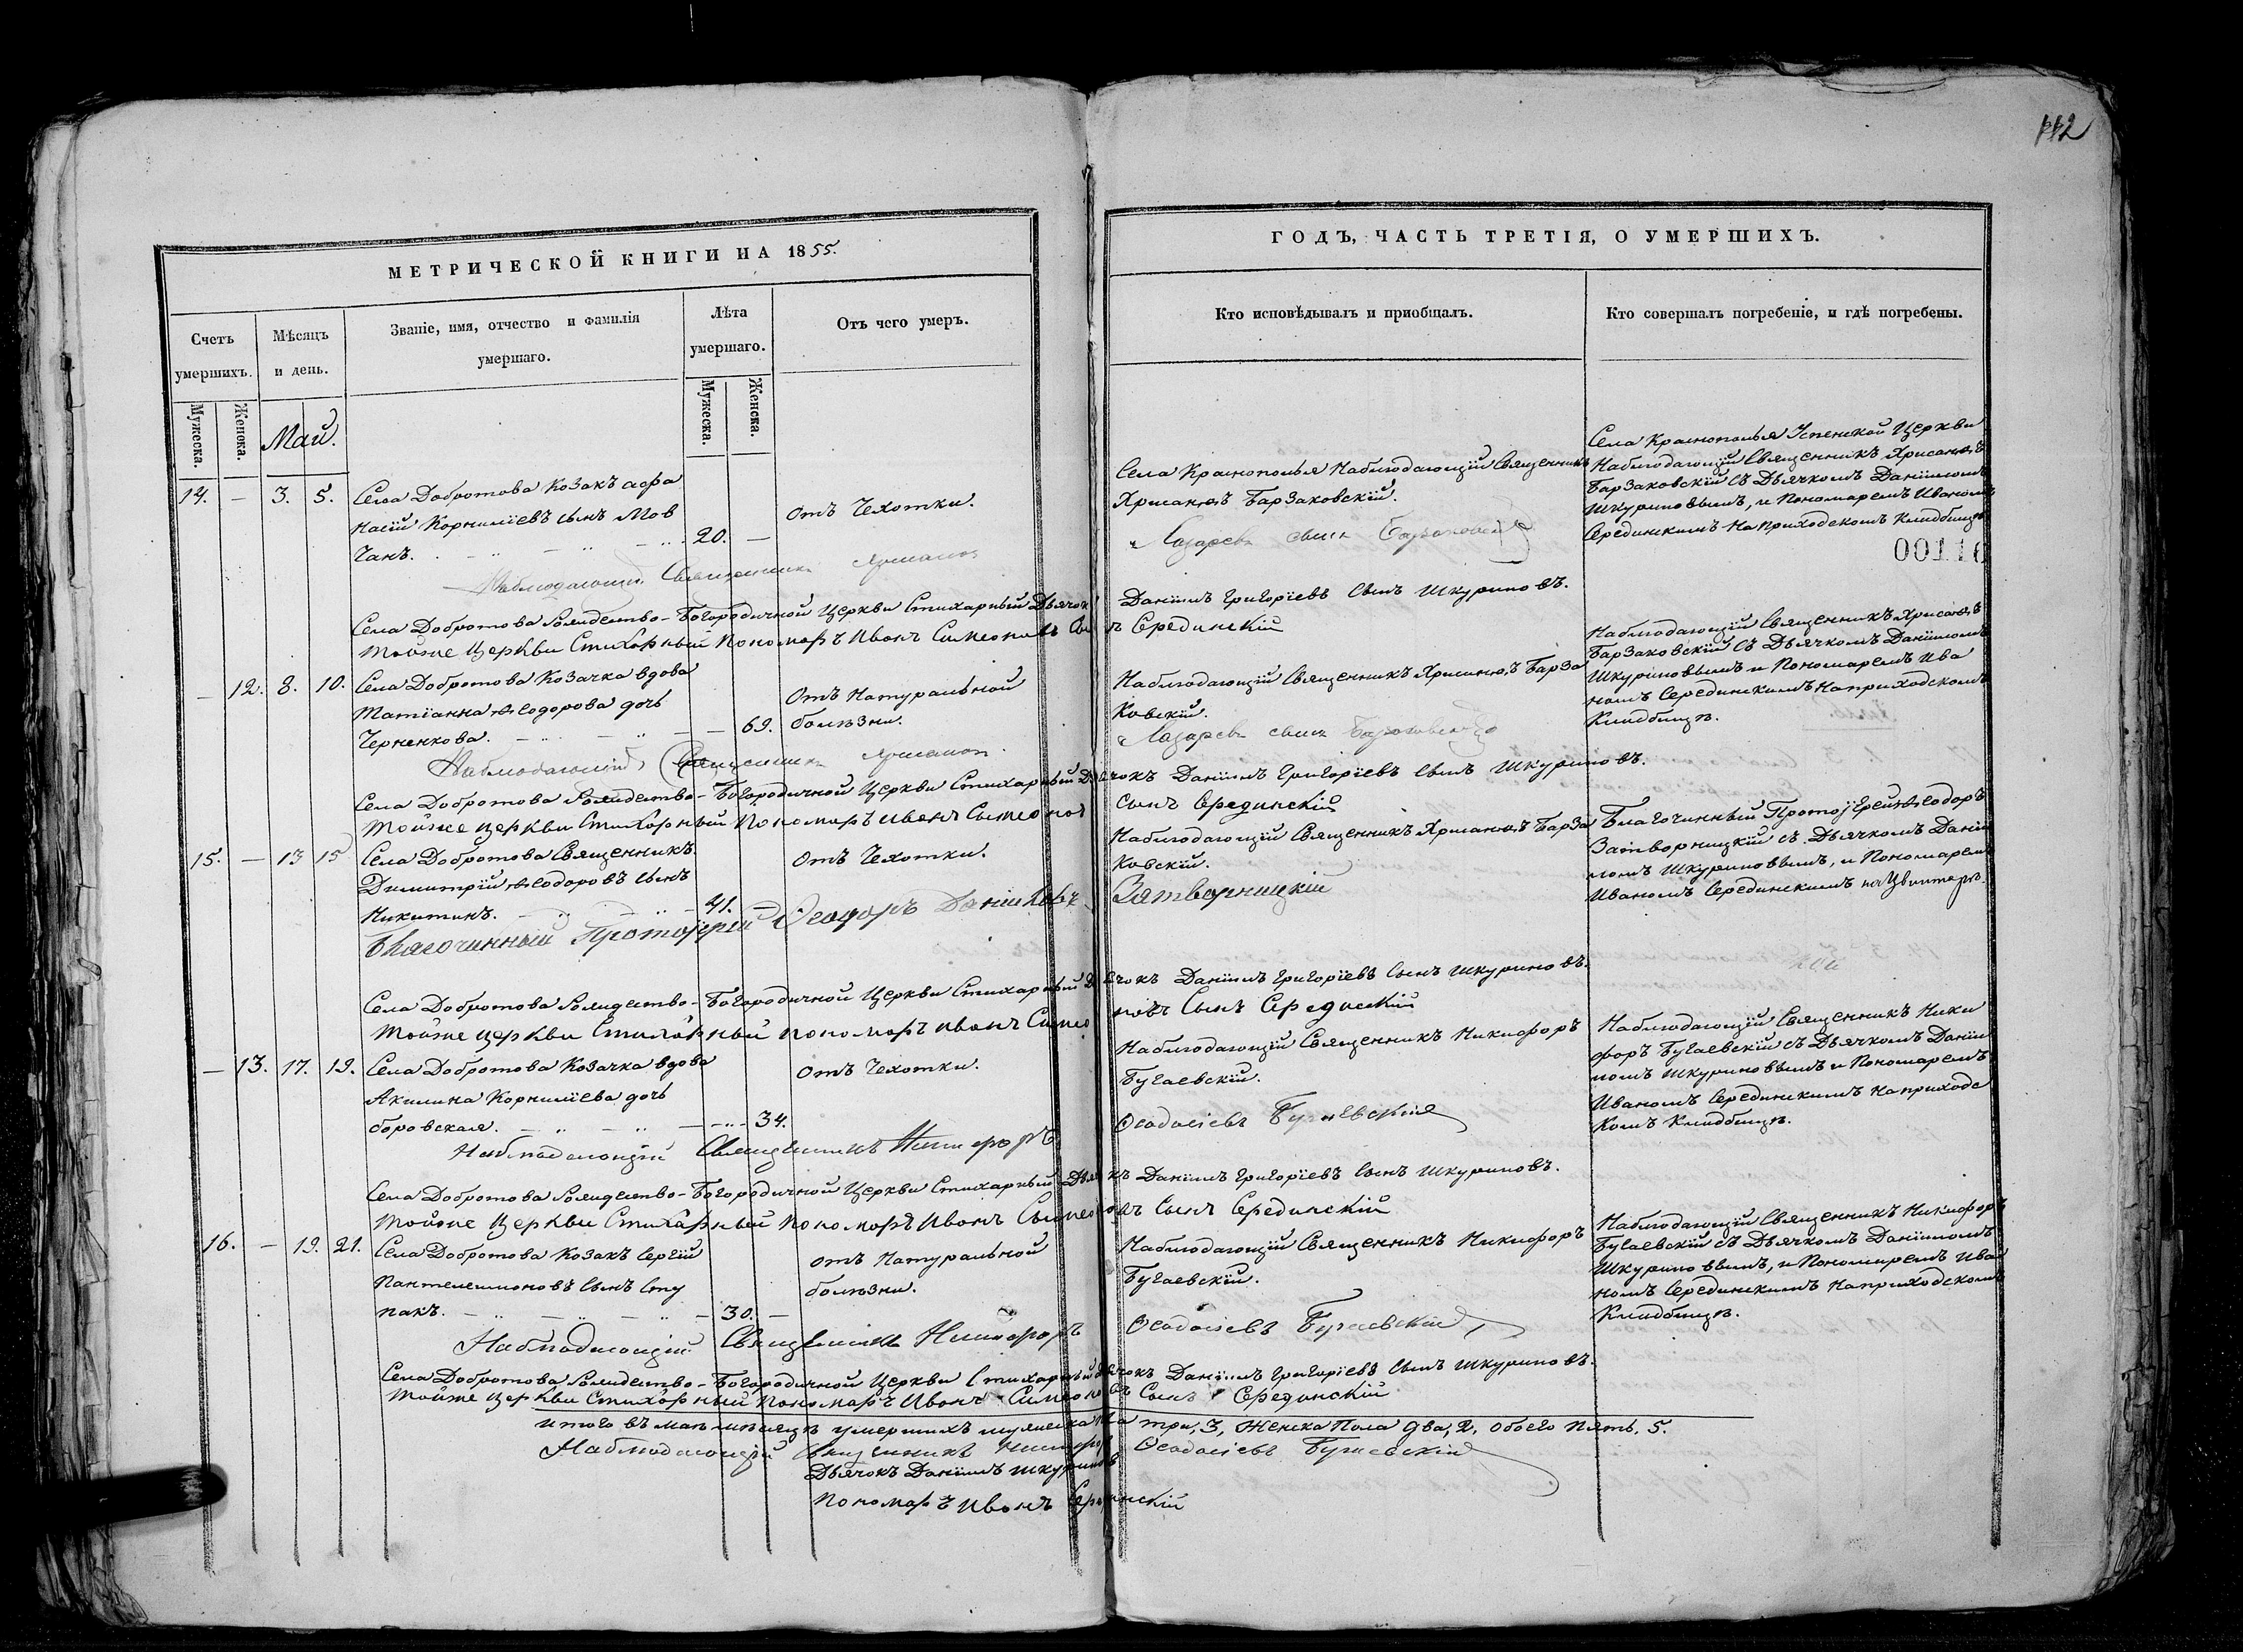 112
МЕТРИЧЕСКОЙ КНИГИ НА 1855.
Счетъ умершихъ.
Мѣсяцъ и день.
Званіе, имя, отчество и фамилія умершаго.
Лѣта умершаго.
Отъ чего умеръ.
Мужеска.
Женска.
Май.
Мужеска.
Женска.
ГОДЪ, ЧАСТЬ ТРЕТІЯ, О УМЕРШИХЪ.
Кто исповѣдывалъ и пріобщалъ.
Кто совершалъ погребеніе, и гдѣ погребены.
14. — 3. 5.
Села Добротова Козакъ Афа
насій Корнилїевъ сынъ Мов
чанъ. 20. —
отъ Чехотки.
Села Краснополья Наблюдающій Священникъ
Хрисанѳъ Барзаковскій.
Села Краснополья Успенской Церкви
Наблюдающій Священникъ Хрисанѳъ
Барзаковскій съ Дьячкомъ Данїиломъ
Шкуриновымъ, и Пономаремъ Иваномъ
Серединскимъ на приходскомъ Кладбищѣ
00116
Наблюдающій Священникъ Хрисанѳъ
Лазаревъ сынъ Барзаковскій
Села Добротова Рождество-Богородичной Церкви Стихарный Дьячокъ Данїилъ Григорїевъ Сынъ Шкуриновъ.
Тойже Церкви Стихарный Пономарь Иванъ Симеоновъ Сынъ Серединскій
— 12. 8. 10.
Села Добротова Козачка вдова
Татїанна Ѳеодорова дочь
Черненкова. — 69.
Отъ Натуральной
болѣзни.
Наблюдающій Священникъ Хрисанѳъ Барза
ковскій.
Наблюдающій Священникъ Хрисанѳъ
Барзаковскій съ Дьячкомъ Данїиломъ
Шкуриновымъ и Пономаремъ Ива
номъ Серединскимъ на приходскомъ
Кладбищѣ.
Наблюдающій Священникъ Хрисанѳъ
Лазаревъ сынъ Барзаковскій
Села Добротова Рождество-Богородичной Церкви Стихарный Дьячокъ Данїилъ Григорїевъ Сынъ Шкуриновъ.
Тойже церкви Стихарный Пономарь Иванъ Сымеоновъ сынъ Серединскій
15. — 13 15
Села Добротова Священникъ
Димитрїй Ѳеодоровъ сынъ
Никитинъ. 41. —
отъ Чехотки.
Наблюдающій Священникъ Хрисанѳъ Барза
ковскій.
Благочинный Протоіерей Ѳеодоръ
Затворницкій съ Дьячкомъ Данїи
ломъ Шкуриновымъ, и Пономаремъ
Иваномъ Серединскимъ на Цвинтарѣ.
Благочинный Протоіерей Ѳеодоръ Даніиловъ
Затворницкій
Села Добротова Рождество-Богородичной Церкви Стихарный Дьячокъ Данїилъ Григорїевъ Сынъ Шкуриновъ.
Тойже церкви Стихарный пономарь Иванъ Симеоновъ Сынъ Серединскій
— 13. 17. 19.
Села Добротова Козачка вдова
Акилина Корнилїева дочь
боровская. 34.
отъ Чехотки.
Наблюдающій Священникъ Никифоръ
Бугаевскій.
Наблюдающій Священникъ Ники
форъ Бугаевскій съ Дьячкомъ Данїи
ломъ Шкуриновымъ и Пономаремъ
Иваномъ Серединскимъ на приходс
комъ Кладбищѣ.
Наблюдающій Священникъ Никифоръ
Ѳеодосіевъ Бугаевскій
Села Добротова Рождество-Богородичной Церкви Стихарный Дьячокъ Данїилъ Григорїевъ Сынъ Шкуриновъ.
Тойже Церкви Стихарный пономарь Иванъ Сымеоновъ Сынъ Серединскій
16. — 19. 21.
Села Добротова Козакъ Сергїй
Пантелеимоновъ Сынъ Сту
пакъ. 30. —
отъ Натуральной
болѣзни.
Наблюдающій Священникъ Никифоръ
Бугаевскій.
Наблюдающій Священникъ Никифоръ
Бугаевскій съ Дьячкомъ Данїиломъ
Шкуриновымъ, и Пономаремъ Ива
номъ Серединскимъ на приходскомъ
Кладбищѣ.
Наблюдающій Священникъ Никифоръ
Ѳеодосіевъ Бугаевскій
Села Добротова Рождество-Богородичной Церкви Стихарный Дьячокъ Данїилъ Григорїевъ Сынъ Шкуриновъ.
Тойже церкви Стихарный пономарь Иванъ Симеоновъ Сынъ Серединскій
Итого въ маѣ мѣсяцѣ умершихъ мужеска пола три, 3, Женска Пола два, 2, обоего пять, 5.
Наблюдающій Священникъ Никифоръ Ѳеодосіевъ Бугаевскій
Дьячокъ Данїилъ Шкуриновъ
Пономарь Иванъ Серединскій